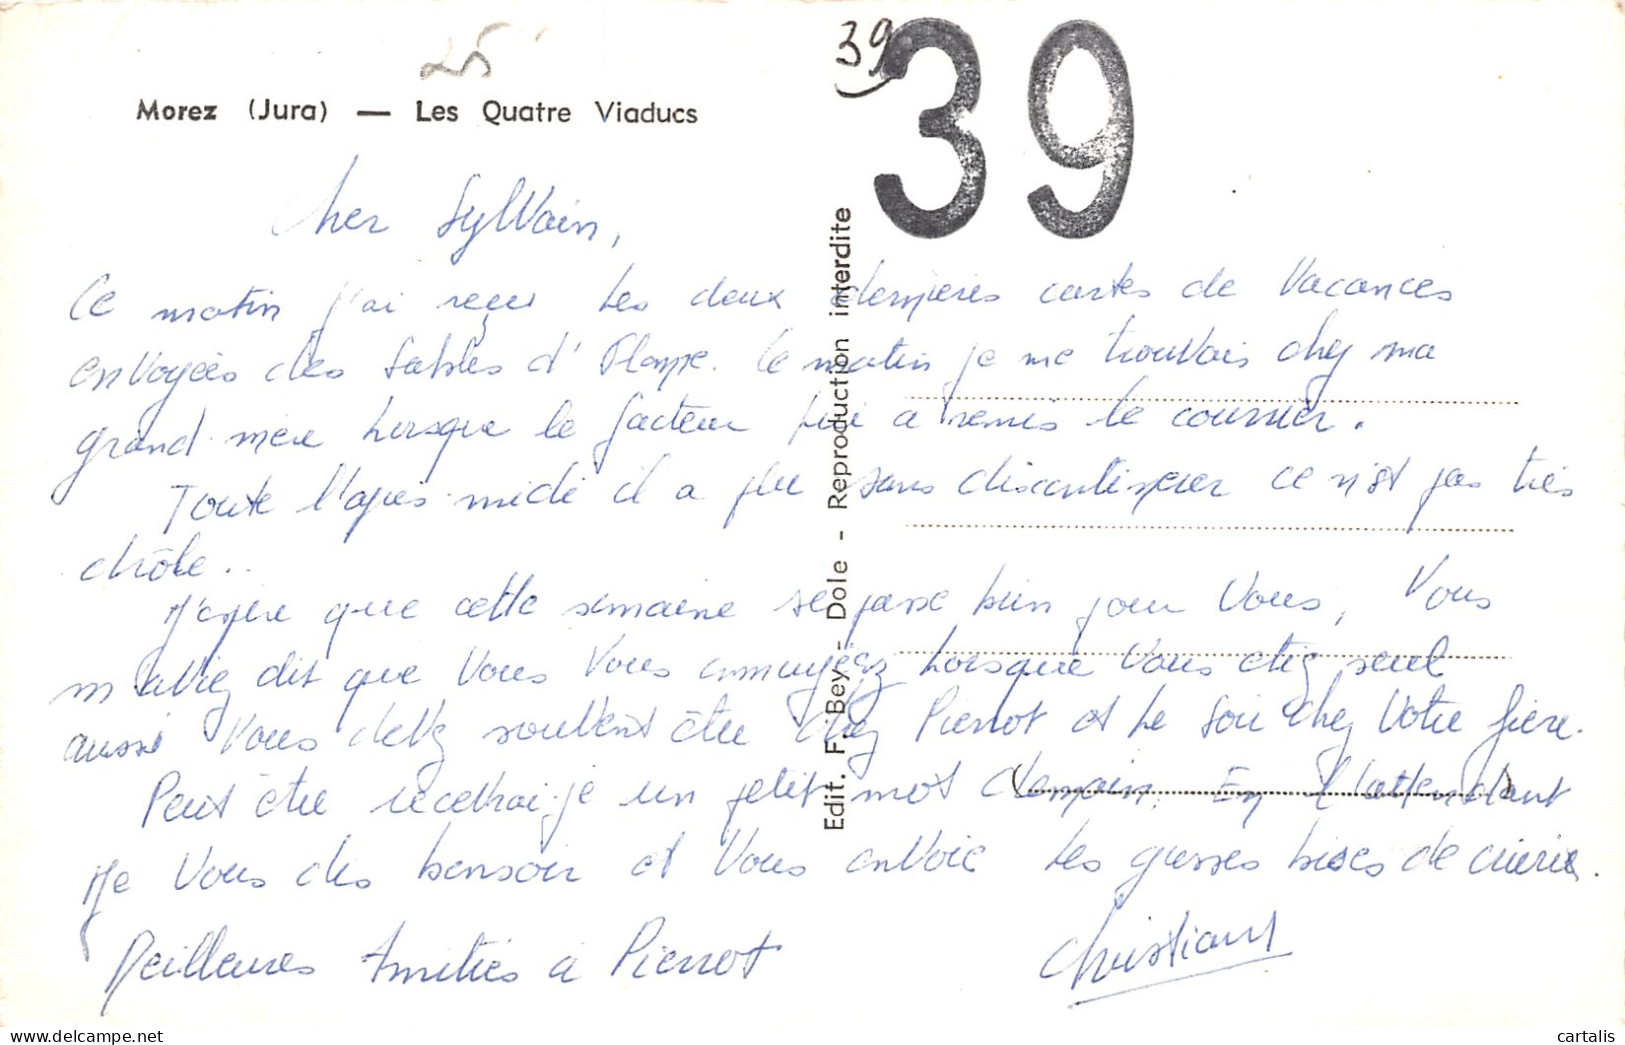 25
39
39
Morez (Jura) — Les Quatre Viaducs
Cher Sylvain,
Ce matin j'ai reçu les deux dernières cartes de Vacances
envoyées des Sables d' Ce matin je me trouvais chez ma
grand-mère lorsque le facteur lui a remis le courrier.
Toute l'après-midi il a plu sans discontinuer ce n'est pas très
drôle..
J'espère que cette semaine se passe bien pour Vous, Vous
m'aviez dit que Vous Vous ennuyiez lorsque Vous étiez seul
aussi Vous devez souvent être chez Pierrot et le soir chez Votre frère.
Peut être recevrai-je un petit mot demain. En l'attendant
je Vous dis bonsoir et Vous envoie les grosses bises de
Meilleures Amitiés à Pierrot
Christiant
Edit. F. Bey - Dole - Reproduction interdite
cartalis